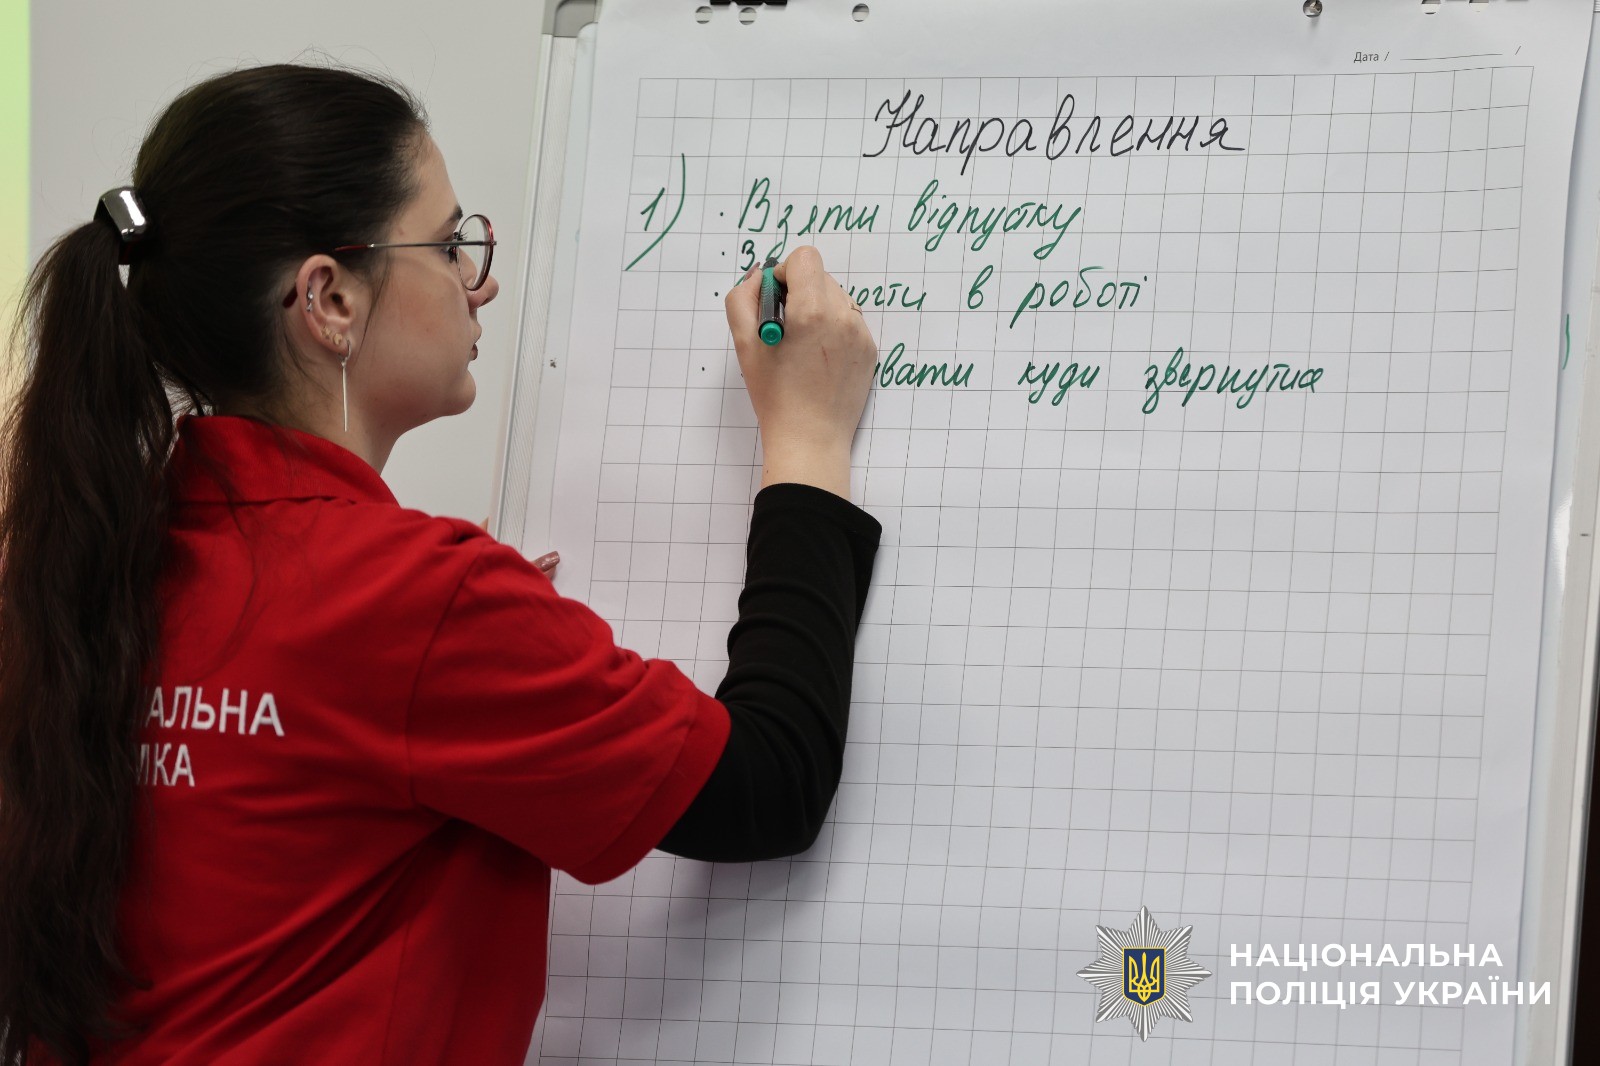 Дата /
Направлення
1) · Взяти відпустку
· З
· в роботі
· куди звернутися
НАЦІОНАЛЬНА
ПОЛІЦІЯ УКРАЇНИ